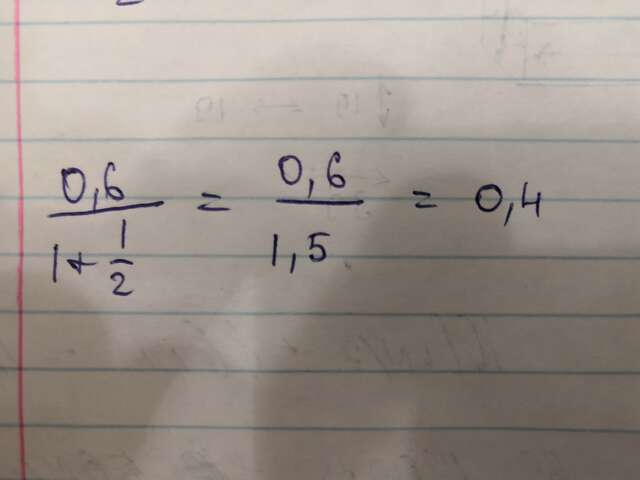 0,6 / (1 + 1/2) = 0,6 / 1,5 = 0,4